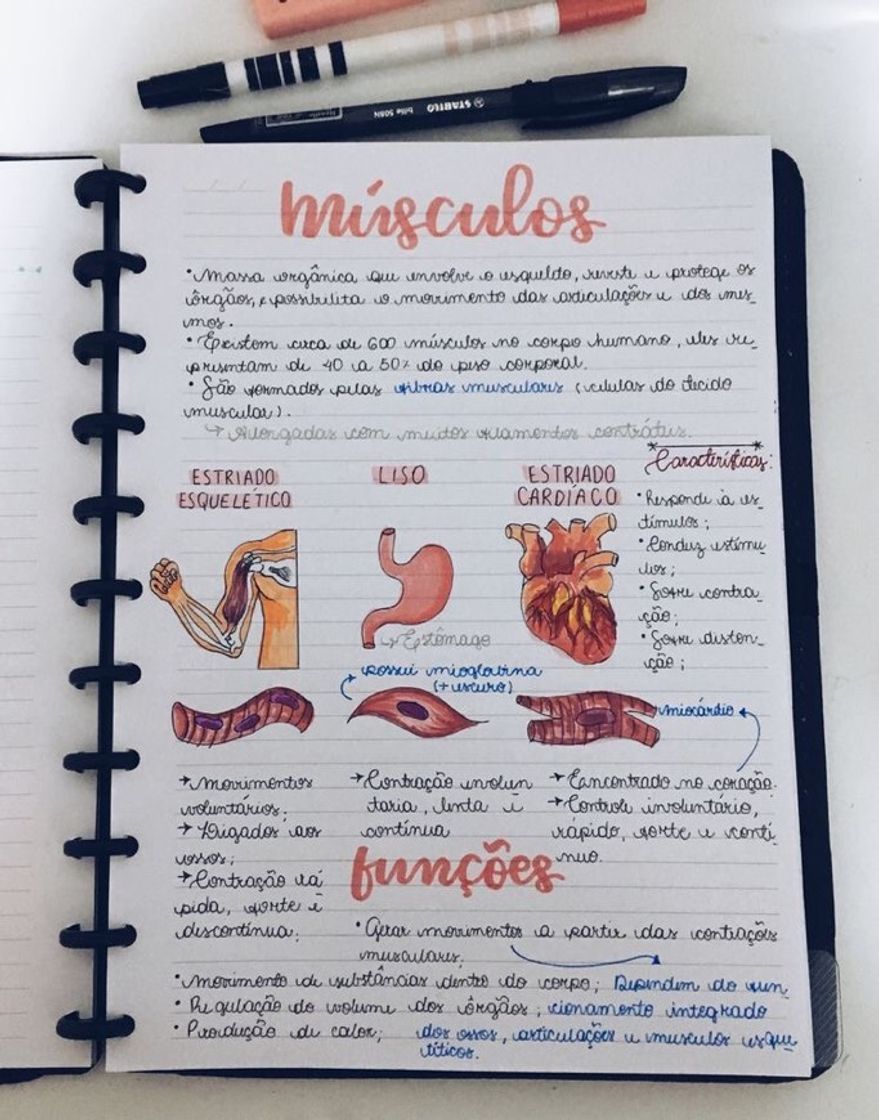 STABILO bille 508N
músculos
• Massa orgânica que envolve o esqueldo, reveste e protege os
órgãos, e possibilita o movimento das articulações e dos mes_
mos.
• Existem cerca de 600 músculos no corpo humano, eles re_
presentam de 40 a 50% do peso corporal.
• São formados pelas fibras musculares (células do tecido
muscular).
↳ Alongadas com muitos filamentos contráteis.
Características:
ESTRIADO
ESQUELÉTICO
LISO
ESTRIADO
CARDÍACO
• Responde à es_
tímulos;
• Conduz estímu_
los;
• Sofre contra_
ção;
• Sofre disten_
ção;
Estômago
possui mioglobina
(+ escuro)
miocárdio
→ Movimentos
voluntários;
→ Ligados aos
ossos;
→ Contração rá
pida, forte e
descontínua;
→ Contração involun
taria, lenta e
contínua
→ Encontrado no coração.
→ Controle involuntário,
rápido, forte e contí_
nuo.
funções
• Gerar movimentos a partir das contrações
musculares.
• Movimento de substâncias dentro do corpo;
• Regulação do volume dos órgãos;
• Produção de calor;
Dependem do fun_
cionamento integrado
dos ossos, articulações e musculos esque_
léticos.